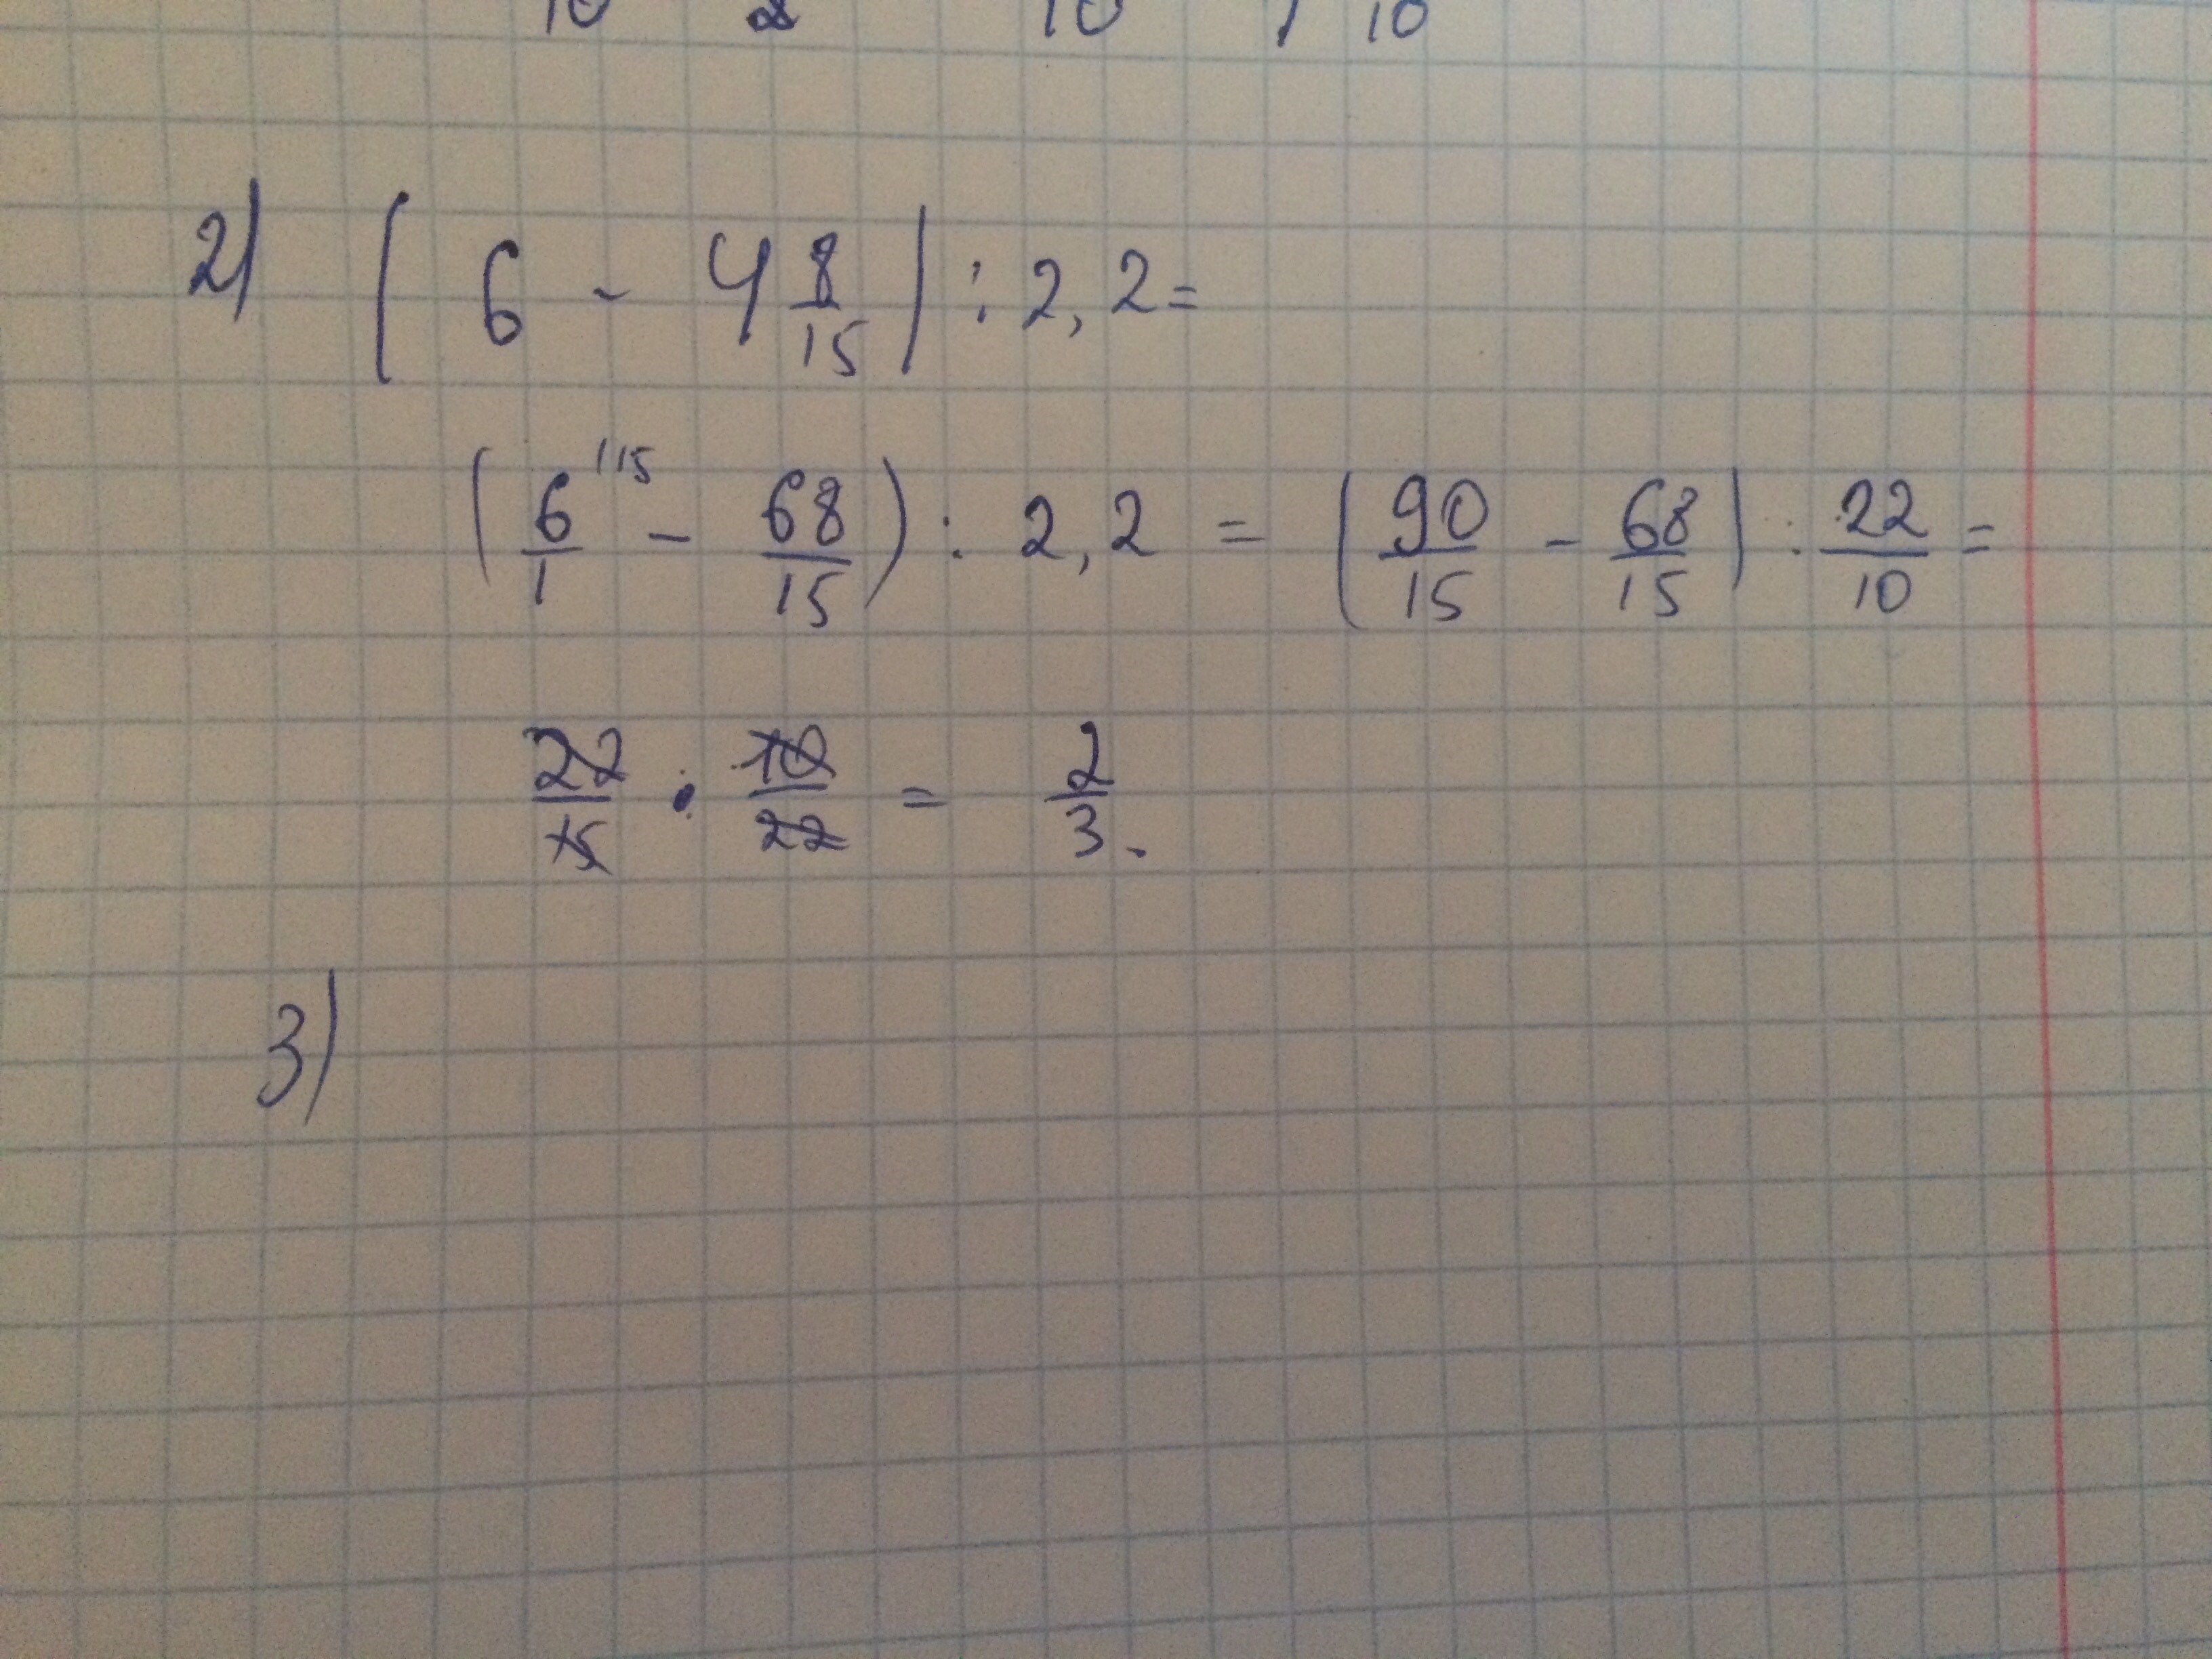 10 2 10 10
2) (6 - 4 8/15) : 2,2 =
(6/1 ^{15} - 68/15) : 2,2 = (90/15 - 68/15) : 22/10 =
22/15 · 10/22 = 2/3.
3)